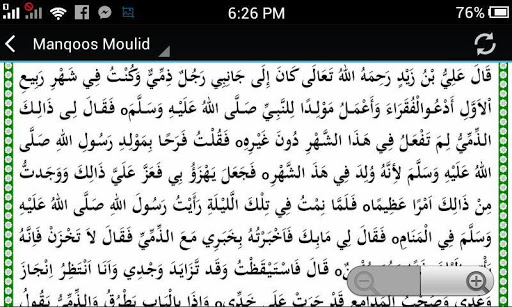 6:26 PM
76%
Manqoos Moulid
قَالَ عَلِيُّ بْنُ زَيْدٍ رَحِمَهُ اللهُ تَعَالَى كَانَ إِلَى جَانِبِي رَجُلٌ ذِمِّيٌّ وَكُنْتُ فِي شَهْرِ رَبِيعِ
الْأَوَّلِ أَدْعُوالْفُقَرَاءَ وَأَعْمَلُ مَوْلِدًا لِلنَّبِيِّ صَلَّى اللهُ عَلَيْهِ وَسَلَّمَ٥ فَقَالَ لِى ذَالِكَ
الذِّمِّيُّ لِمَ تَفْعَلُ فِي هَذَا الشَّهْرِ دُونَ غَيْرِهِ٥ فَقُلْتُ فَرَحًا بِمَوْلِدِ رَسُولِ اللهِ صَلَّى
اللهُ عَلَيْهِ وَسَلَّمَ لِأَنَّهُ وُلِدَ فِي هَذَ الشَّهْرِ٥ فَجَعَلَ يَهْزَؤُ بِي فَعَزَّ عَلَيَّ ذَالِكَ وَوَجَدتُّ
مِنْ ذَالِكَ اَمْرًا عَظِيمًا٥ فَلَمَّا نِمْتُ فِي تِلْكَ اللَّيْلَةِ رَأَيْتُ رَسُولَ اللهِ صَلَّى اللهُ عَلَيْهِ
وَسَلَّمَ فِي الْمَنَامِ٥ فَقَالَ لِي مَابِكَ فَاَخْبَرْتُهُ بِخَبَرِي مَعَ الذِّمِّيِّ فَقَالَ لَا تَحْزَنْ فَإِنَّهُ
قَالَ فَاسْتَيْقَظْتُ وَقَد تَزَايَدَ وَجْدِي وَاَنَا اَنْتَظِرُ اِنْجَازَ
وَعْدِي وَصَحْبُ الْمَدَامِعِ قَد جَرَتْ عَلَى خَدِّي٥ وَإِذَا بِالْبَابِ يَطْرُقُ وَالذِّمِّيُّ يَقُولُ